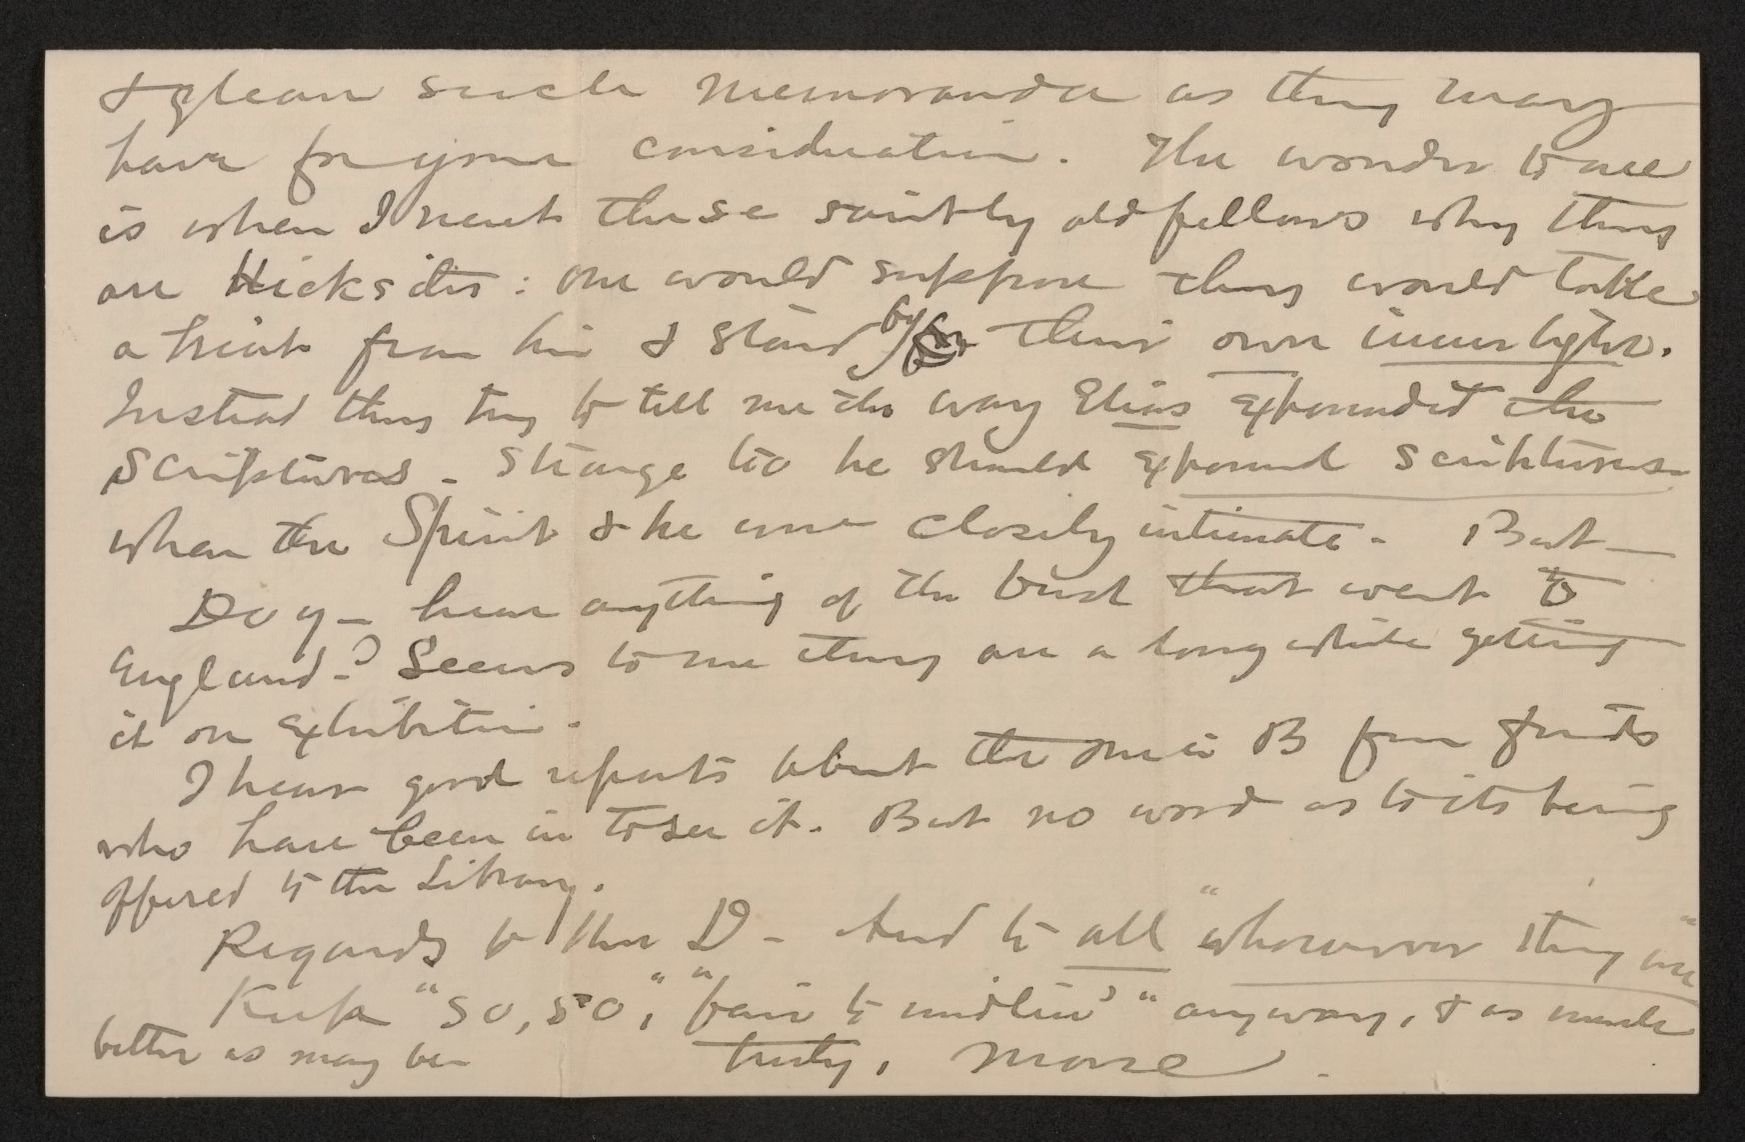 & glean such memoranda as they may
have for your consideration. The wonder to me
is when I meet these saintly old fellows why they
are Hicksites: one would suppose they would take
a hint from him & stand by their own inner light.
Instead they try to tell me the way Elias expounded the
Scriptures – Strange too he should expound scriptures
when the Spirit & he were closely intimate – But –
Do y– hear anything of the bust that went to
England? Seems to me they are a long while getting
it on exhibition –
I hear good reports about the one in B from friends
who have been in to see it. But no word as to its being
offered to the Library.
Regards to Mrs D – And to all "whomever they are"
Keep "so, so," "fair to midlin'" anyway, & as much
better as may be truly, Morse